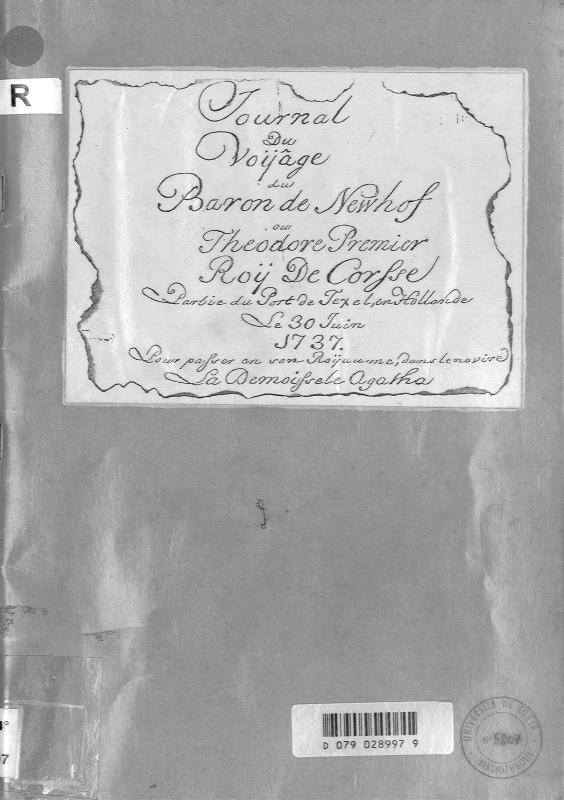 R
Journal
Du
Voijâge
du
Baron de Newhof
ou
Theodore Premier
Roij De Corsse
Partie du Port de Texel, en Hollande
Le 30 Juin
1737.
Pour passer en son Roijaume, dans le navire
La Demoisselle Agatha
D 079 028997 9
UNIVERSITÀ DE CORSE
N° 5207
BIBLIOTHÈQUE
7